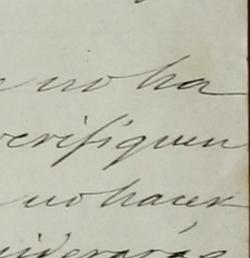 no ha
verifiquen
no hacer